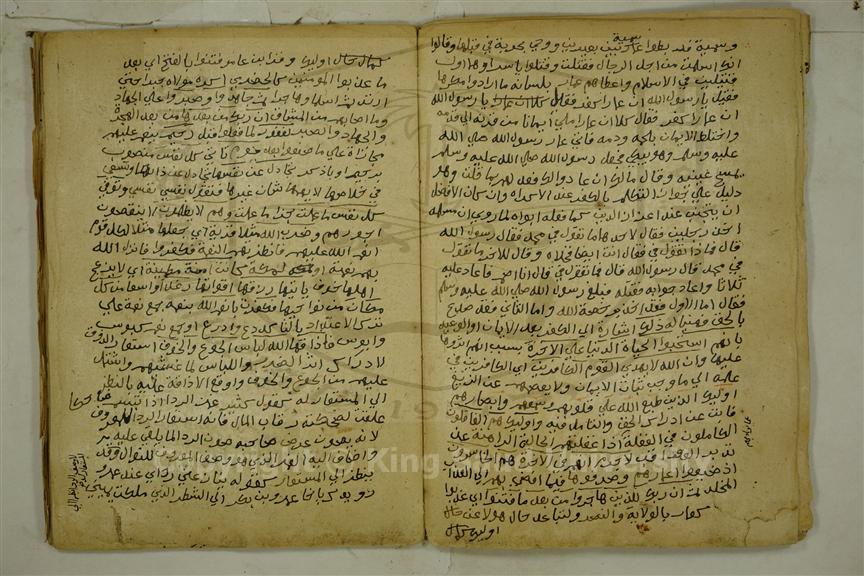 وسمية فقد ربطوها بين بعيرين ووجئ بحربة في قبلها وقالوا
انك اسلمت من اجل الرجال فقتلت وقتلوا ياسرا وهما اول
قتيلين في الاسلام واعطاهم عمار بلسانه ما ارادوا مكرها
فقيل يا رسول الله ان عمارا كفر فقال كلا ان عمارا
ملئ ايمانا من قرنه الى قدمه
واختلط الايمان بلحمه ودمه فاتى عمار رسول الله صلى الله
عليه وسلم وهو يبكي فجعل رسول الله صلى الله عليه وسلم
يمسح عينيه وقال مالك ان عادوا لك فعد لهم بما قلت وهو
دليل على جواز التكلم بالكفر عند الاكراه وان كان الافضل
ان يتجنب عنه اعزازا للدين كما فعله ابواه لما روي ان مسيلمة
اخذ رجلين فقال لاحدهما ما تقول في محمد فقال رسول الله
قال فما تقول في فقال انت ايضا فخلاه وقال للاخر ما تقول
في محمد قال رسول الله قال فما تقول في قال انا اصم فاعاد عليه
ثلاثا واعاد جوابه فقتله فبلغ رسول الله صلى الله عليه وسلم
فقال اما الاول فقد اخذ برخصة الله واما الثاني فقد صدع
بالحق فهنيئا له ذلك اشارة الى الكفر بعد الايمان او الوعيد
بانهم استحبوا الحياة الدنيا على الاخرة بسبب انهم اثروها
عليها وان الله لا يهدي القوم الكافرين اي الكافرين في
علمه الى ما يوجب ثبات الايمان ولا يعصمهم عن الزيغ
اولئك الذين طبع الله على قلوبهم وسمعهم وابصارهم
فابت عن ادراك الحق والتامل فيه واولئك هم الغافلون
الكاملون في الغفلة اذ اغفلتهم الحالة الراهنة عن
تدبر العواقب لا جرم انهم في الاخرة هم الخاسرون
اذ ضيعوا اعمارهم وصرفوها فيما افضى بهم الى العذاب
المخلد ثم ان ربك للذين هاجروا من بعد ما فتنوا اي عذبوا
كعمار بالولاية والنصر وثم لتباعد حال هؤلاء عن حال
اولئك
كمال حال اولئك وقرا ابن عامر فتنوا بالفتح اي بعد
ما عذبوا المومنين كالحضرمي اكره مولاه جبرا حتى
ارتد ثم اسلما وهاجرا ثم جاهدوا وصبروا على الجهاد
وما اصابهم من المشاق ان ربك من بعدها من بعد الهجرة
والجهاد والصبر لغفور لما فعلوا قبل رحيم ينعم عليهم
مجازاة على ما صنعوا بعد يوم تاتي كل نفس منصوب
برحيم او باذكر تجادل عن نفسها تجادل عن ذاتها وتسعى
في خلاصها لا يهمها شان غيرها فتقول نفسي نفسي وتوفى
كل نفس ما عملت جزاء ما عملت وهم لا يظلمون لا ينقصون
اجورهم وضرب الله مثلا قرية اي جعلها مثلا لكل قوم
انعم الله عليهم فابطرتهم النعمة فكفروا فانزل الله
بهم نقمته او لمكة كانت امنة مطمئنة اي لا يزعج
اهلها خوف ياتيها رزقها اقواتها رغدا واسعا من كل
مكان من نواحيها فكفرت بانعم الله بنعمه جمع نعمة على
ترك الاعتداد بالتاء كدرع وادرع او جمع نعم كبوس
وابوس فاذاقها الله لباس الجوع والخوف استعار الذوق
لادراك اثر الضرر واللباس لما غشيهم واشتمل
عليهم من الجوع والخوف واوقع الاذاقة عليه بالنظر
الى المستعار له كقول كثير غمر الرداء اذا تبسم ضاحكا
غلقت لضحكته رقاب المال فانه استعار الرداء للمعروف
لانه يصون عرض صاحبه صون الرداء لما يلقى عليه
واضاف اليه الغمر الذي هو وصف المعروف والنوال وقد
ينظر الى المستعار كقوله ينازعني ردائي عبد عمرو
رويدك يا اخا عمرو بن بكر لي الشطر الذي ملكت يميني